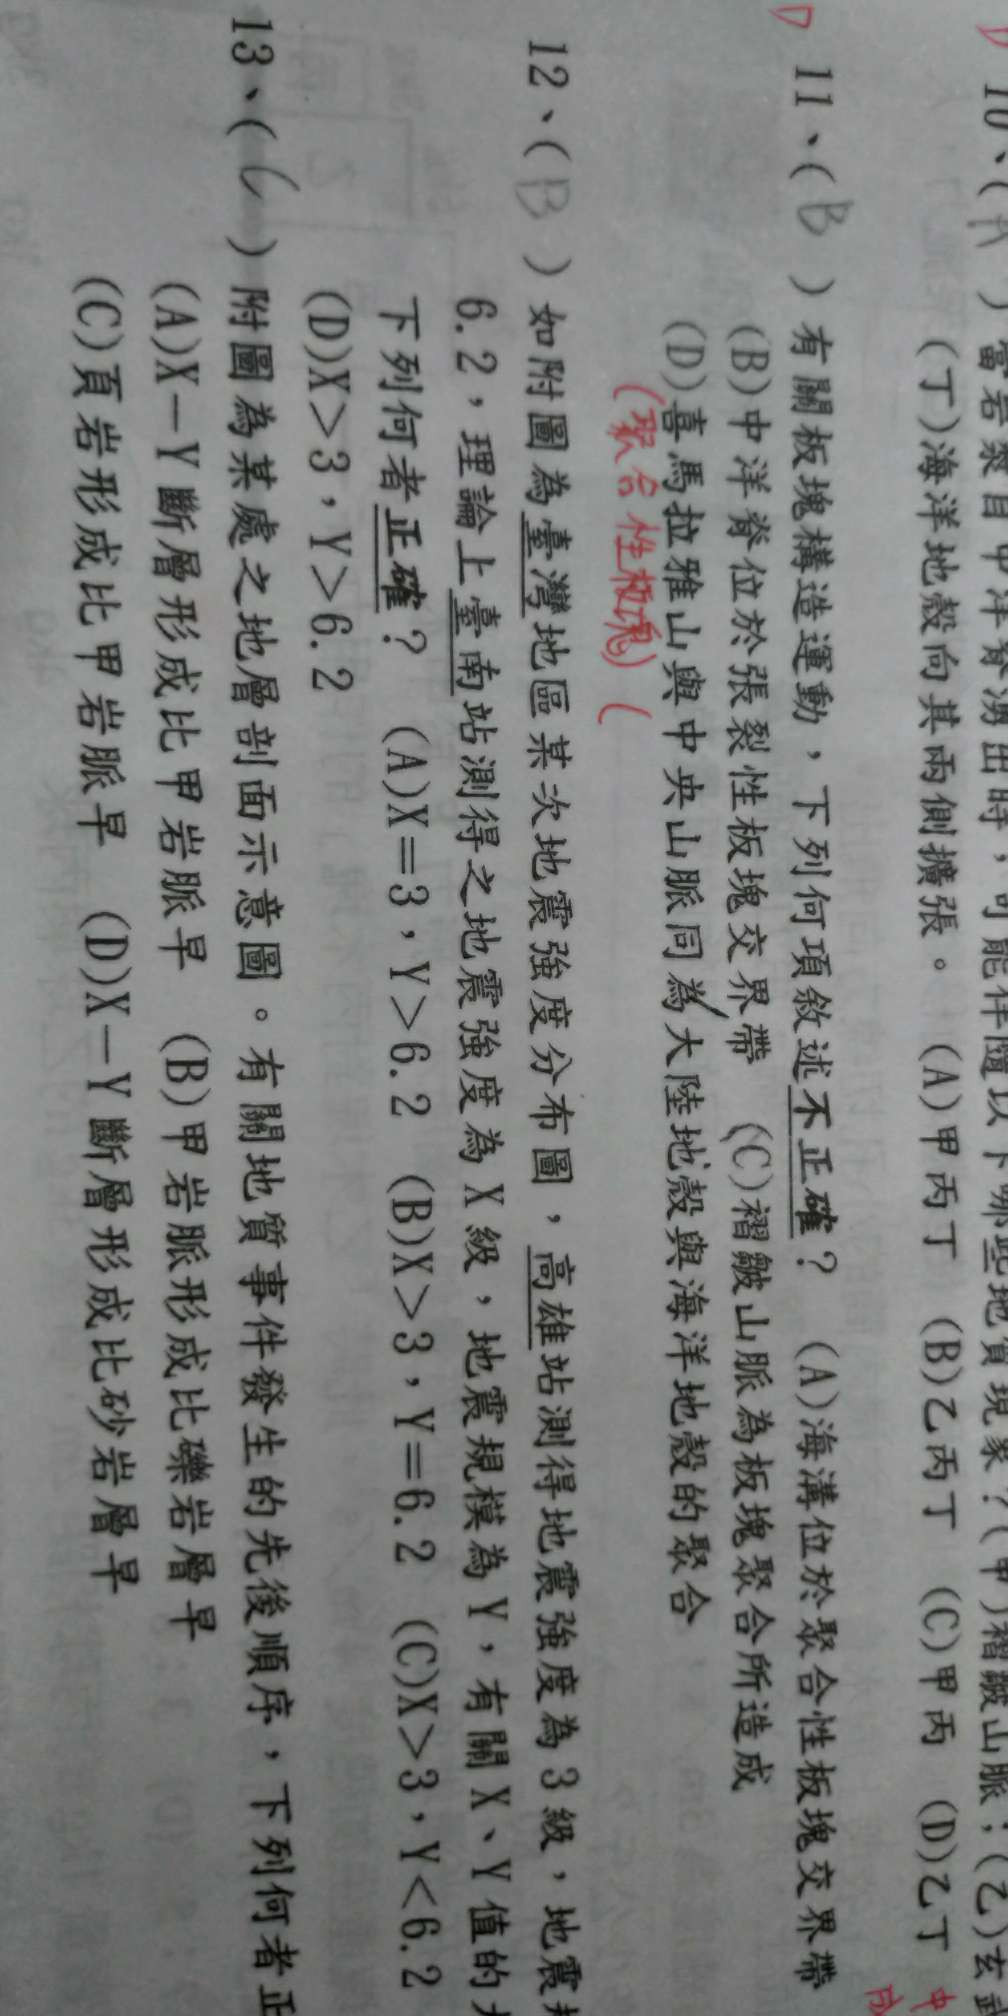 D 10、(A)當岩漿自中洋脊湧出時，可能伴隨以下哪些地質現象？(甲)褶皺山脈；(乙)玄
(丁)海洋地殼向其兩側擴張。 (A)甲丙丁 (B)乙丙丁 (C)甲丙 (D)乙丁
D 11、(B)有關板塊構造運動，下列何項敘述不正確？ (A)海溝位於聚合性板塊交界帶
(B)中洋脊位於張裂性板塊交界帶 (C)褶皺山脈為板塊聚合所造成
(D)喜馬拉雅山與中央山脈同為大陸地殼與海洋地殼的聚合
(聚合性板塊) (
12、(B)如附圖為臺灣地區某次地震強度分布圖，高雄站測得地震強度為3級，地震
6.2，理論上臺南站測得之地震強度為X級，地震規模為Y，有關X、Y值的
下列何者正確？ (A)X＝3，Y＞6.2 (B)X＞3，Y＝6.2 (C)X＞3，Y＜6.2
(D)X＞3，Y＞6.2
13、(C)附圖為某處之地層剖面示意圖。有關地質事件發生的先後順序，下列何者正
(A)X－Y斷層形成比甲岩脈早 (B)甲岩脈形成比礫岩層早
(C)頁岩形成比甲岩脈早 (D)X－Y斷層形成比砂岩層早